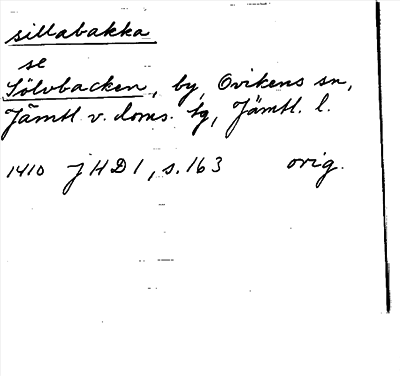 sillabakka
se
Sölvbacken, by, Ovikens sn,
Jämtl. v. doms. tg, Jämtl. l.
1410 JHD 1, s. 163 orig.